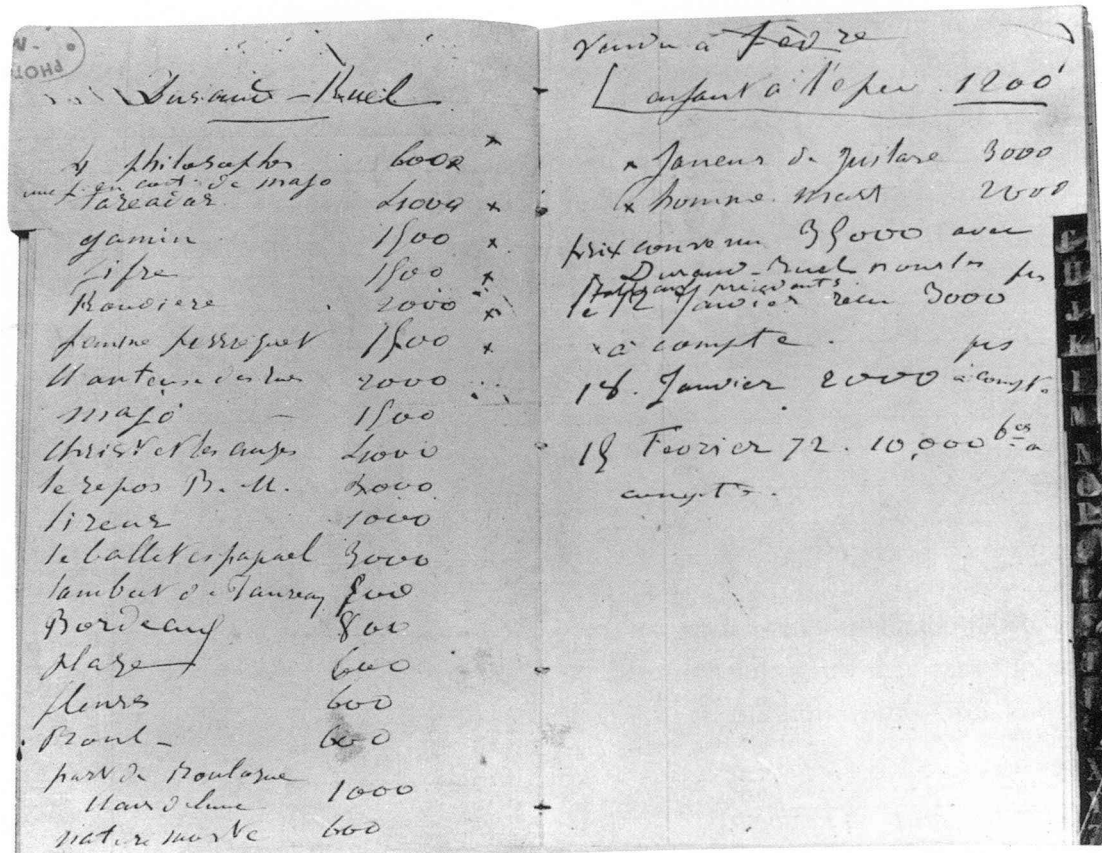 Durand-Ruel
4 philosophes 6000 x
une f. en cost. de majo
Toreador 4000 x
gamin 1500 x
fifre 1500 x
Rouviere 2000 x
femme perroquet 1500 x
Chanteuse des rues 2000
majo — 1500
Christ et les anges 4000
le repos B. M.
tireur 1000
le ballet espagnol 3000
combat de Taureau
Bordeaux 800
plage 600
fleurs 600
600
port de Boulogne
Clair de lune 1000
nature morte 600
Vendu à Fèvre
L'enfant à l'épée 1200
x Joueur de guitare 3000
x homme mort 2000
prix convenu 35000 avec
Durand-Ruel pour les
Tableaux précédents
le 12 Janvier reçu 3000
x à compte.
18. Janvier 2000 à compte
15 Fevrier 72. 10,000 à
compte.